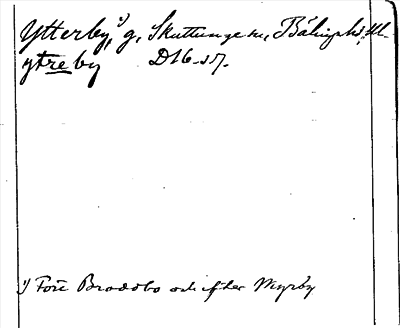 Ytterby,¹) g, Skuttunge sn, Bälings hd, Upl.
ytreby D16-17.
¹) Före Broddbo och efter Myrby